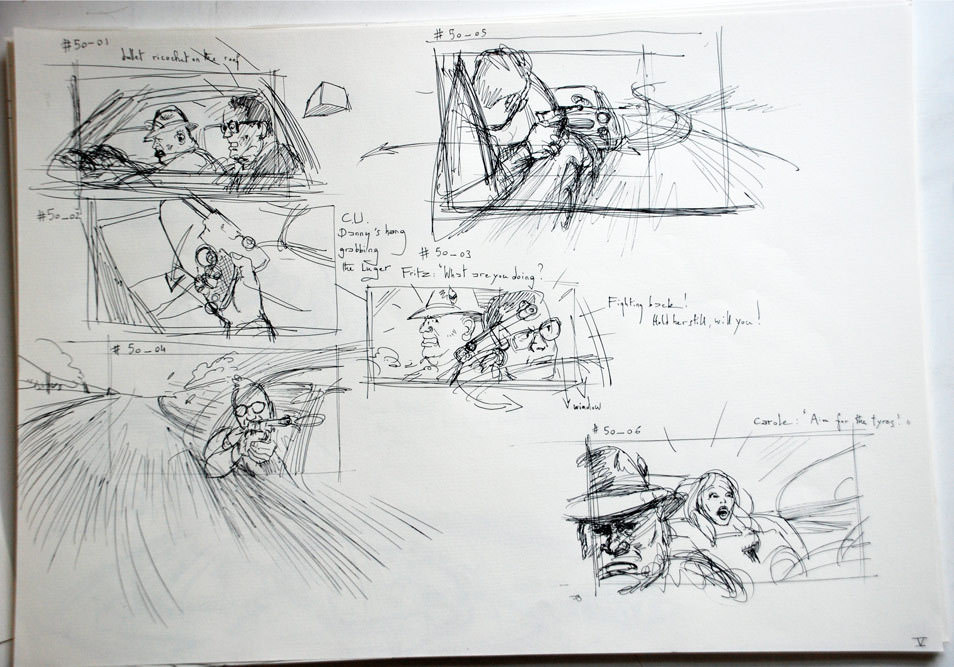 #50-01
bullet ricochet on the roof
#50-02
C.U.
Danny's hang
grabbing
the Luger
#50-03
Fritz: "What are you doing?
Fighting back!
Hold her still, will you!
window
#50-04
#50-05
#50-06
Carole: "Aim for the tyres!"
V